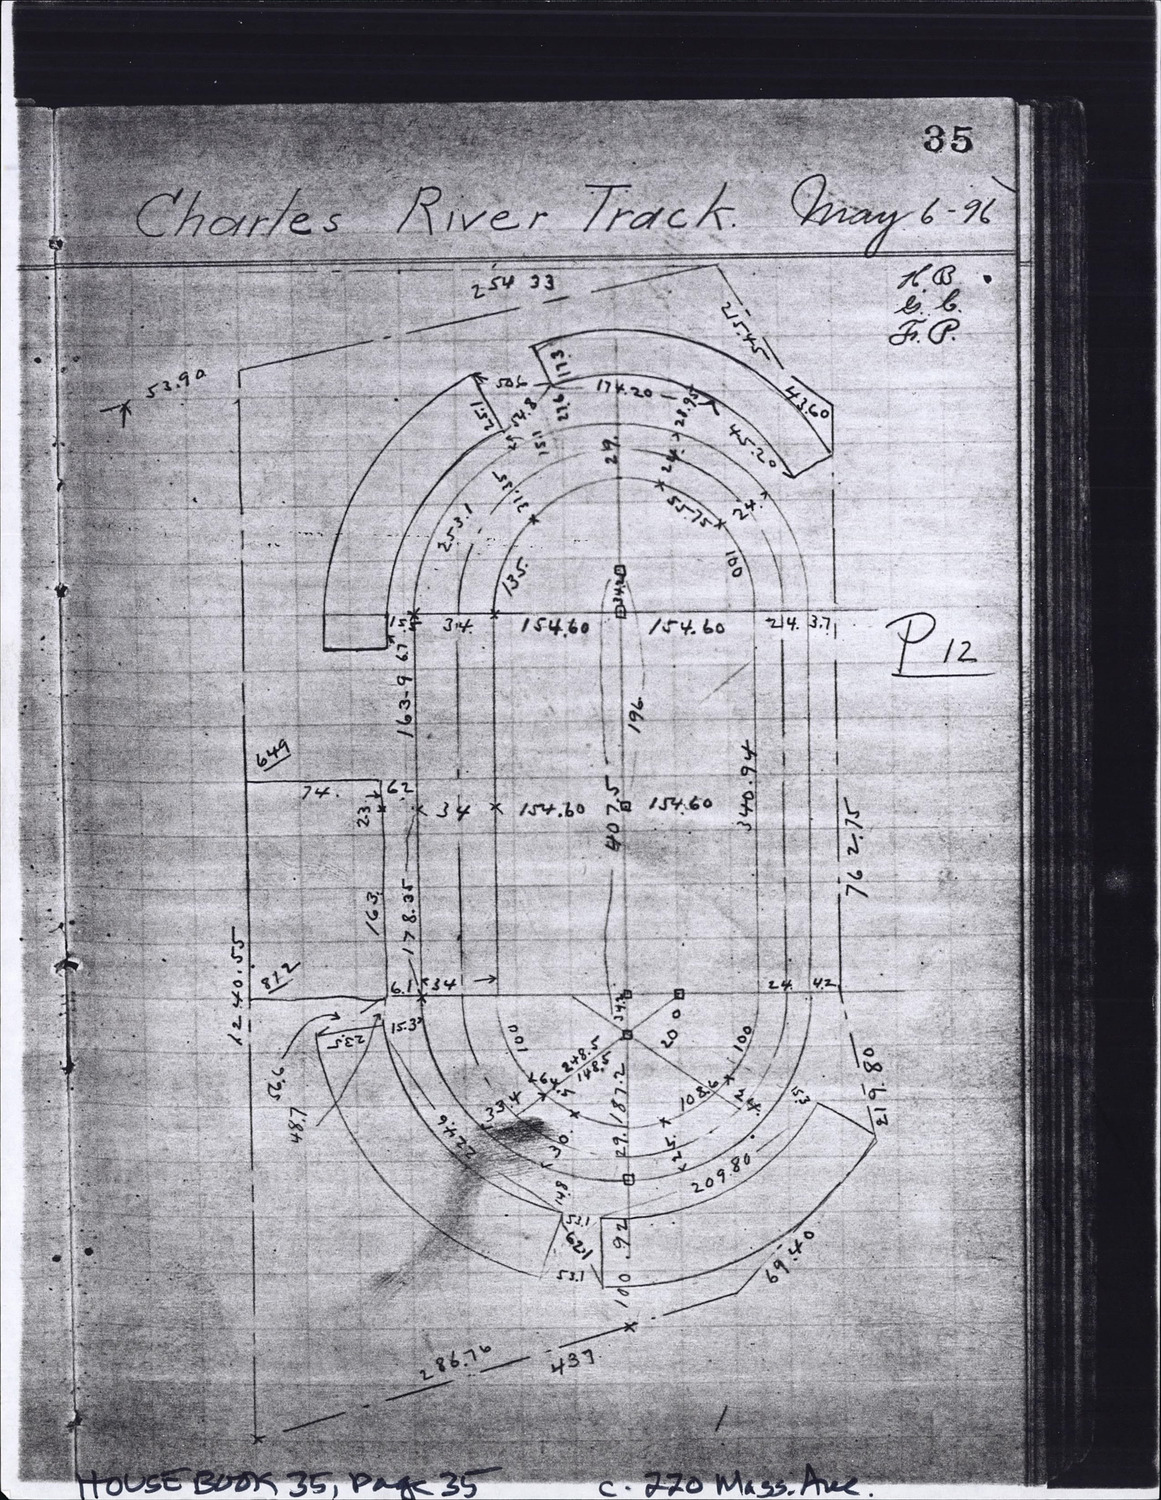 35
Charles River Track. May 6-96
H.B.
G.C.
F.P.
254 33
215.45
53.90
50.6
17.3
174.20
43.60
15.1
54.8
27.6
28.95
45.20
15.1
29.
24.
31.35
55.75
24.
253.1
135.
100
34.20
34.
154.60
154.60
24. 37.
P 12
67
163-9
196
649
74.
62
23
34
154.60
407.5
154.60
340.94
762.75
163.
178.35
1240.55
812
6.1
34
24
42
15.3
23.5
101
200
100
56.6
248.5
148.5
219.80
48.7
33.4
187.2
108.6
24.
5.3
224.6
30.
29.
25.
209.80
148
53.1
62.1
92
53.1
100
69.40
286.76
437
HOUSE BOOK 35, Page 35 c. 270 Mass. Ave.